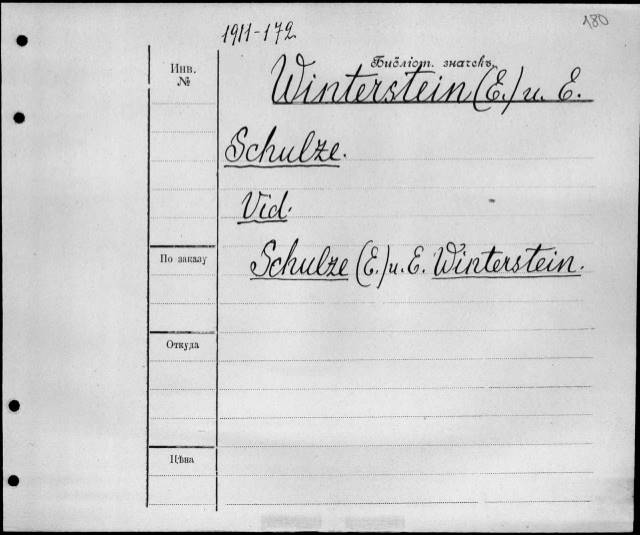 180
1911-172
Инв. №
Библіот. значекъ
Winterstein (E.) u. E.
Schulze.
Vid.
По заказу
Schulze (E.) u. E. Winterstein.
Откуда
Цѣна